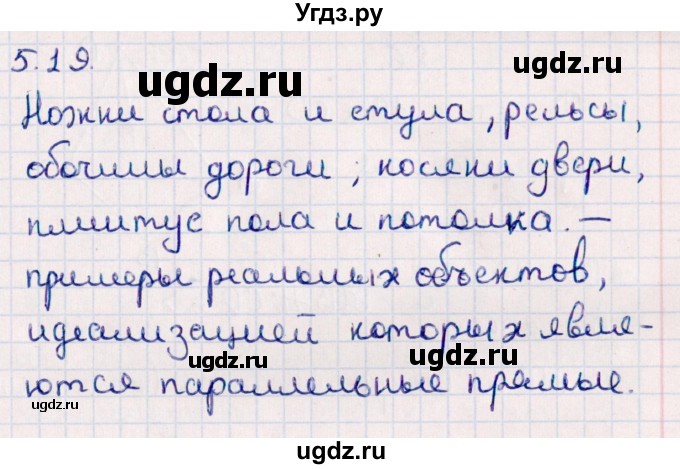 Угдз.ру
5.19.
ugdz.ru
Ножки стола и стула, рельсы,
ugdz.ru
обочины дороги, косяки двери,
плинтус пола и потолка. —
ugdz.ru
ugdz.ru
примеры реальных объектов,
идеализацией которых явля-
ugdz.ru
ugdz.ru
ются параллельные прямые.
ugdz.ru
ugdz.ru